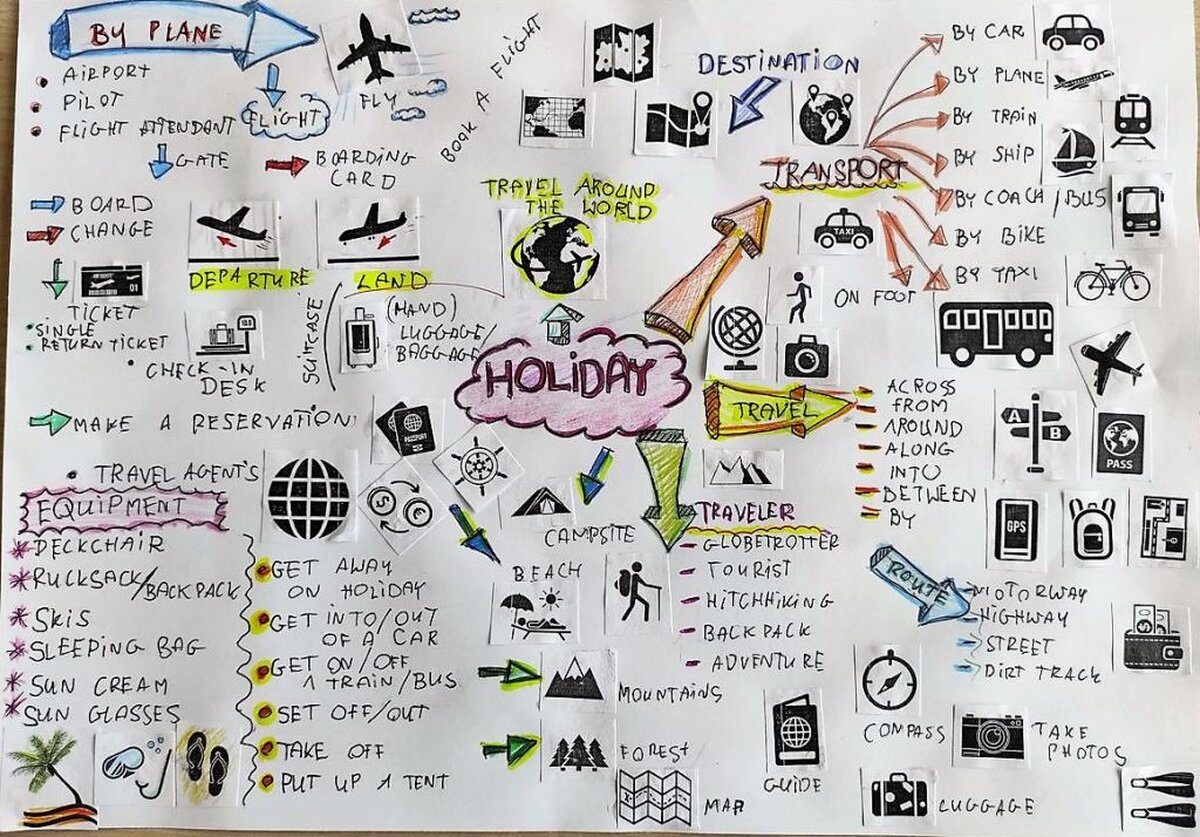 BY PLANE
AIRPORT
PILOT
FLIGHT ATTENDANT
GATE
BOARDING
CARD
FLIGHT
FLY
BOOK A FLIGHT
BOARD
CHANGE
TICKET
SINGLE
RETURN TICKET
01
DEPARTURE
LAND
CHECK-IN
DESK
SUITCASE
(HAND)
LUGGAGE/
BAGGAGE
MAKE A RESERVATION
TRAVEL AGENT'S
PASSPORT
TRAVEL AROUND
THE WORLD
HOLIDAY
DESTINATION
TRANSPORT
BY CAR
BY PLANE
BY TRAIN
BY SHIP
BY COACH/BUS
BY BIKE
BY TAXI
TAXI
ON FOOT
TRAVEL
ACROSS
FROM
AROUND
ALONG
INTO
BETWEEN
BY
A
B
PASS
GPS
EQUIPMENT
DECKCHAIR
RUCKSACK/BACKPACK
SKIS
SLEEPING BAG
SUN CREAM
SUN GLASSES
GET AWAY
ON HOLIDAY
GET INTO/OUT
OF A CAR
GET ON/OFF
A TRAIN/BUS
SET OFF/OUT
TAKE OFF
PUT UP A TENT
$
€
CAMPSITE
BEACH
MOUNTAINS
FOREST
MAP
TRAVELER
GLOBETROTTER
TOURIST
HITCHHIKING
BACKPACK
ADVENTURE
ROUTE
MOTORWAY
HIGHWAY
STREET
DIRT TRACK
GUIDE
COMPASS
TAKE
PHOTOS
LUGGAGE